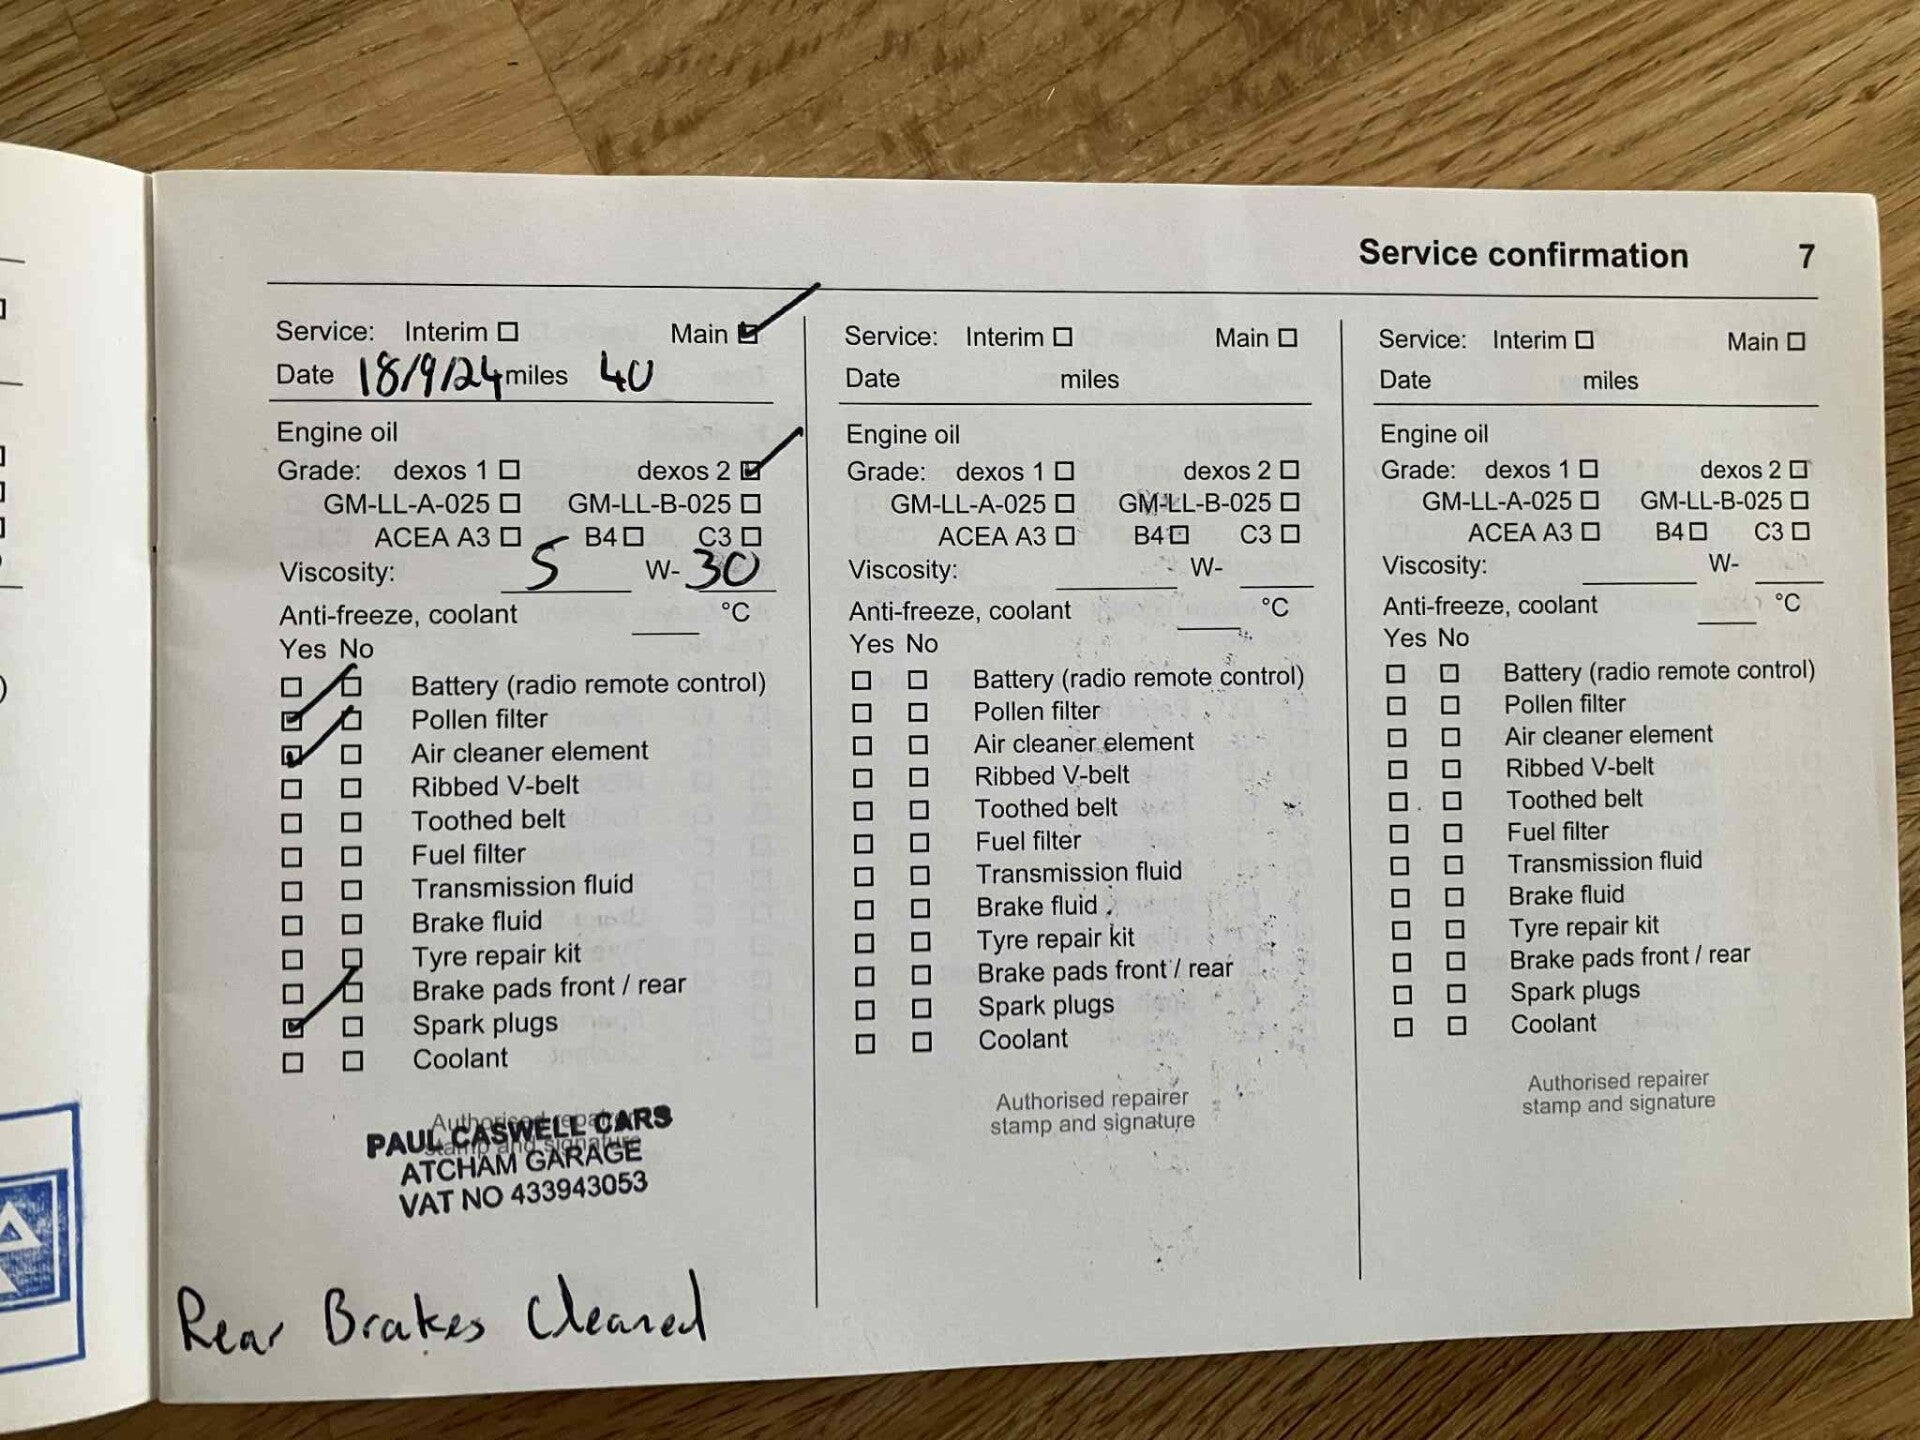 Service confirmation 7
Service: Interim ☐ Main ☑
Date 18/9/24 miles 40
Engine oil
Grade: dexos 1 ☐ dexos 2 ☑
GM-LL-A-025 ☐ GM-LL-B-025 ☐
ACEA A3 ☐ B4 ☐ C3 ☐
Viscosity: 5 W-30
Anti-freeze, coolant ____ °C
Yes No
☐ ☐ Battery (radio remote control)
☑ ☐ Pollen filter
☑ ☐ Air cleaner element
☐ ☐ Ribbed V-belt
☐ ☐ Toothed belt
☐ ☐ Fuel filter
☐ ☐ Transmission fluid
☐ ☐ Brake fluid
☐ ☐ Tyre repair kit
☐ ☐ Brake pads front / rear
☑ ☐ Spark plugs
☐ ☐ Coolant
Authorised repairer
stamp and signature
PAUL CASWELL CARS
ATCHAM GARAGE
VAT NO 433943053
Rear Brakes Cleaned
Service: Interim ☐ Main ☐
Date miles
Engine oil
Grade: dexos 1 ☐ dexos 2 ☐
GM-LL-A-025 ☐ GM-LL-B-025 ☐
ACEA A3 ☐ B4 ☐ C3 ☐
Viscosity: ____ W- ____
Anti-freeze, coolant ____ °C
Yes No
☐ ☐ Battery (radio remote control)
☐ ☐ Pollen filter
☐ ☐ Air cleaner element
☐ ☐ Ribbed V-belt
☐ ☐ Toothed belt
☐ ☐ Fuel filter
☐ ☐ Transmission fluid
☐ ☐ Brake fluid
☐ ☐ Tyre repair kit
☐ ☐ Brake pads front / rear
☐ ☐ Spark plugs
☐ ☐ Coolant
Authorised repairer
stamp and signature
Service: Interim ☐ Main ☐
Date miles
Engine oil
Grade: dexos 1 ☐ dexos 2 ☐
GM-LL-A-025 ☐ GM-LL-B-025 ☐
ACEA A3 ☐ B4 ☐ C3 ☐
Viscosity: ____ W- ____
Anti-freeze, coolant ____ °C
Yes No
☐ ☐ Battery (radio remote control)
☐ ☐ Pollen filter
☐ ☐ Air cleaner element
☐ ☐ Ribbed V-belt
☐ ☐ Toothed belt
☐ ☐ Fuel filter
☐ ☐ Transmission fluid
☐ ☐ Brake fluid
☐ ☐ Tyre repair kit
☐ ☐ Brake pads front / rear
☐ ☐ Spark plugs
☐ ☐ Coolant
Authorised repairer
stamp and signature